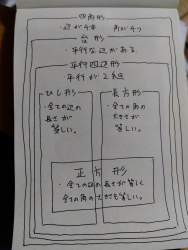 四角形
・辺が4本　角が4つ
台形
・平行な辺がある。
平行四辺形
・平行が2組
ひし形
・全ての辺の
長さが
等しい。
長方形
・全ての角の
大きさが
等しい。
正方形
・全ての辺の長さが等しく
全ての角の大きさも等しい。